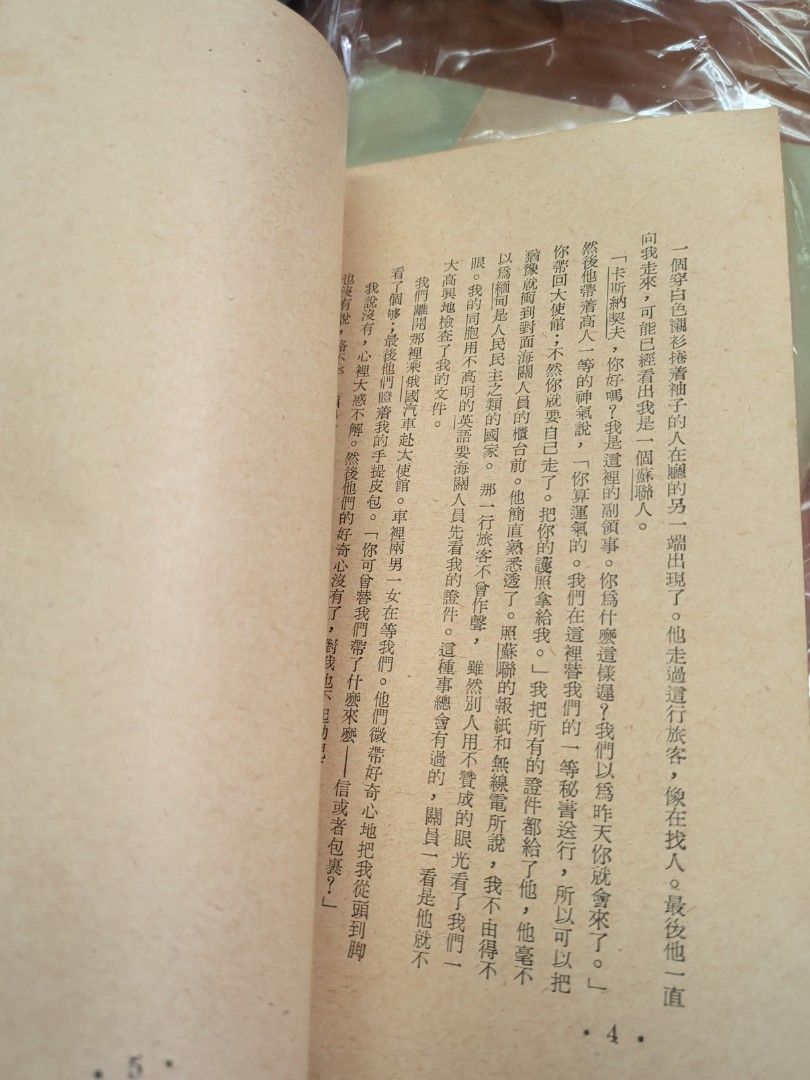 一個穿白色襯衫捲着袖子的人在廳的另一端出現了。他走過這行旅客，像在找人。最後他一直
向我走來，可能已經看出我是一個蘇聯人。
「卡斯納契夫，你好嗎？我是這裡的副領事。你爲什麼這樣遲？我們以爲昨天你就會來了。」
然後他帶着高人一等的神氣說，「你算運氣的。我們在這裡替我們的一等秘書送行，所以可以把
你帶回大使館；不然你就要自己走了。把你的護照拿給我。」我把所有的證件都給了他，他毫不
猶豫就衝到對面海關人員的櫃台前。他簡直熟悉透了。照蘇聯的報紙和無線電所說，我不由得不
以爲緬甸是人民民主之類的國家。那一行旅客不曾作聲，雖然別人用不贊成的眼光看了我們一
眼。我的同胞用不高明的英語要海關人員先看我的證件。這種事總會有過的，關員一看是他就不
大高興地檢查了我的文件。
我們離開那裡乘俄國汽車赴大使館。車裡兩男一女在等我們。他們微帶好奇心地把我從頭到脚
看了個够；最後他們瞪着我的手提皮包。「你可曾替我們帶了什麼來麼——信或者包裹？」
我說沒有，心裡大惑不解。然後他們的好奇心沒有了，對我也不
也沒有說，
• 4 •
• 5 •